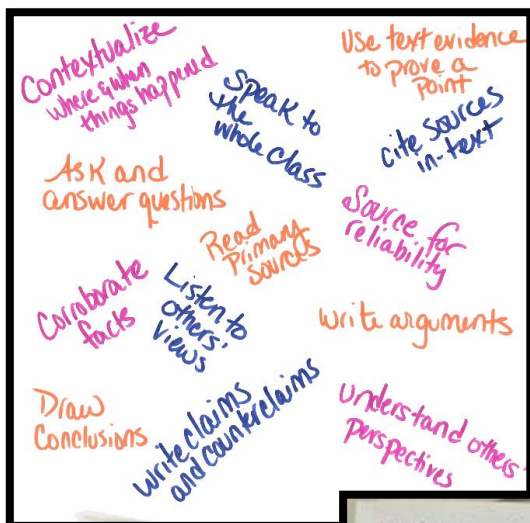 Contextualize
where & when
things happened
Use text evidence
to prove a
point
Speak to
the
whole class
cite sources
in-text
Ask and
answer questions
Source for
reliability
Read
Primary
sources
Corroborate
facts
Listen to
others'
views
write arguments
Draw
Conclusions
write claims
and counterclaims
understand others'
perspectives